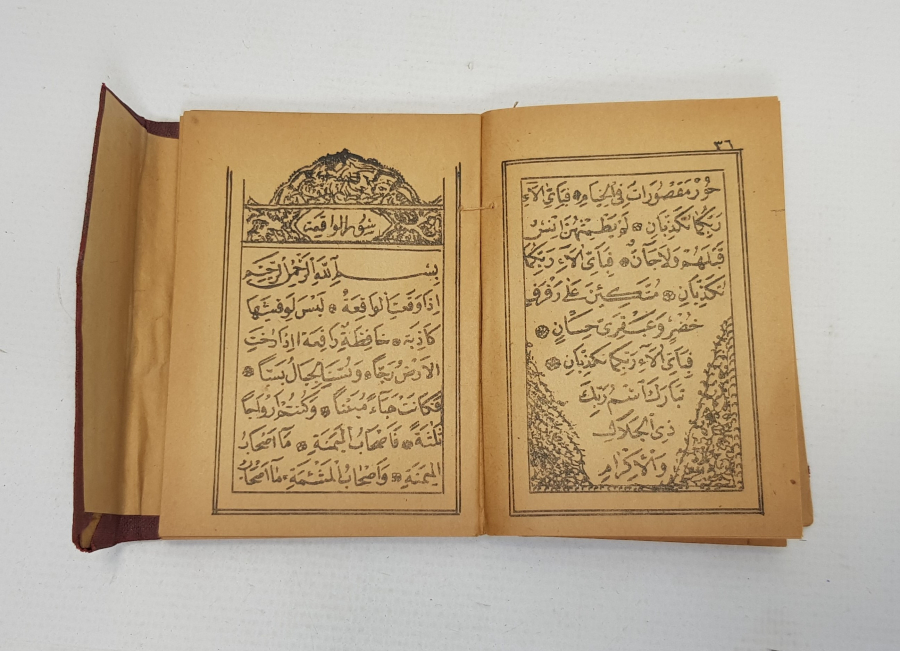 ٣٦
حُورٌ مَقْصُورَاتٌ فِي الْخِيَامِ ۞ فَبِأَيِّ الْآءِ
رَبِّكُمَا تُكَذِّبَانِ ۞ لَمْ يَطْمِثْهُنَّ اِنْسٌ
قَبْلَهُمْ وَلَا جَانٌّ ۞ فَبِأَيِّ الْآءِ رَبِّكُمَا
تُكَذِّبَانِ ۞ مُتَّكِئِينَ عَلَى رَفْرَفٍ
خُضْرٍ وَعَبْقَرِيٍّ حِسَانٍ ۞
فَبِأَيِّ الْآءِ رَبِّكُمَا تُكَذِّبَانِ ۞
تَبَارَكَ اسْمُ رَبِّكَ
ذِي الْجَلَالِ
وَالْاِكْرَامِ
سورة الواقعة
بِسْمِ اللّٰهِ الرَّحْمٰنِ الرَّحِيمِ
اِذَا وَقَعَتِ الْوَاقِعَةُ ۞ لَيْسَ لِوَقْعَتِهَا
كَاذِبَةٌ ۞ خَافِضَةٌ رَافِعَةٌ اِذَا رُجَّتِ
الْاَرْضُ رَجًّا ۞ وَبُسَّتِ الْجِبَالُ بَسًّا ۞
فَكَانَتْ هَبَاءً مُنْبَثًّا ۞ وَكُنْتُمْ اَزْوَاجًا
ثَلٰثَةً ۞ فَاَصْحَابُ الْمَيْمَنَةِ ۞ مَا اَصْحَابُ
الْمَيْمَنَةِ ۞ وَاَصْحَابُ الْمَشْئَمَةِ ۞ مَا اَصْحَابُ